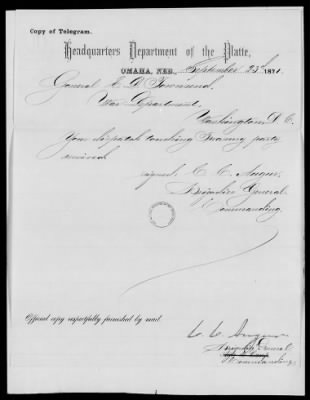 Copy of Telegram.
Headquarters Department of the Platte,
OMAHA, NEB., September 23d 1871.
General E. D. Townsend.
War Department.
Washington D. C.
Your dispatch touching party
received.
signed. C. C. Augur.
Brigadier General.
Commanding.
Official copy respectfully furnished by mail.
C. C. Augur
Brigadier General
Commanding.